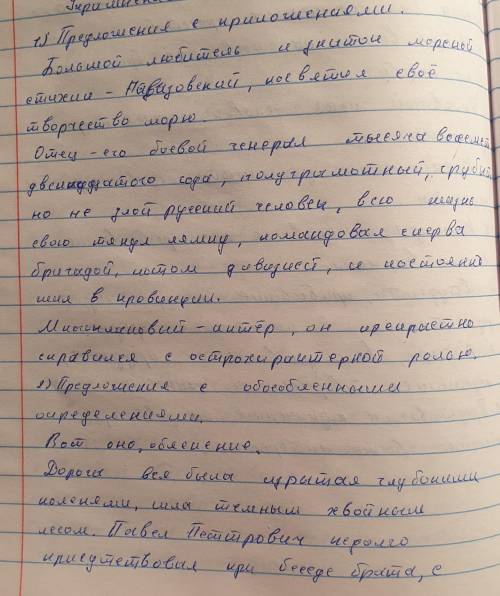 1) Предложения с приложениями.
Большой любитель и знаток морской
стихии - Айвазовский, посвятил своё
творчество морю.
Отец - его боевой генерал тысяча восемсот
двенадцатого года, полуграмотный, грубый
но не злой русский человек, всю жизнь
свою тянул лямку, командовал сперва
бригадой, потом дивизией, и постоянно
жил в провинции.
Миллионовый - актёр, он прекрастно
справился с острохарактерной ролью.
2) Предложения с обособленными
определениями.
Вот оно, обяснение.
Дорога вся была изрытая глубокими
колеями, шла тёмным хвойным
лесом. Павел Петтрович недолго
присутствовал при беседе брата, с